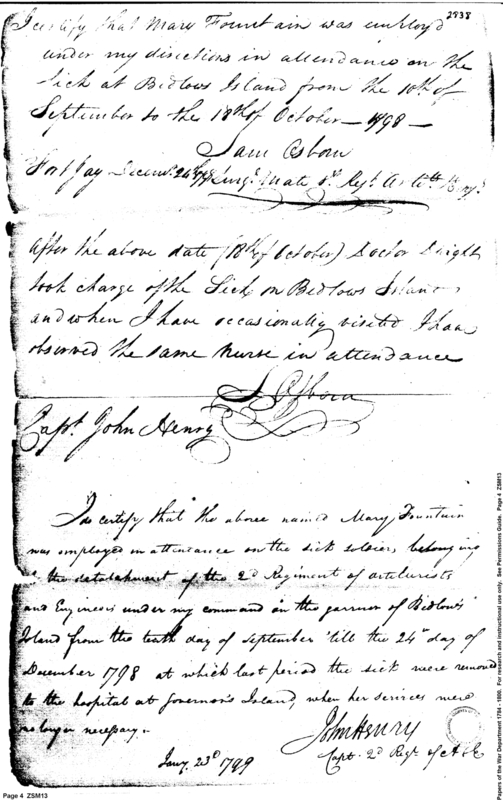 2938
I certify that Mary Fountain was employ'd
under my directions in attendance on the
Sick at Bedlows Island from the 10th of
September to the 18th of October — 1798 —
Sam Osborn
Fort Jay Decemr. 24th 1798 Surgs. Mate 2d. Regt.
After the above date (18th of October) Doctor Dwight
took charge of the Sick on Bedlows Island
and when I have occasionally visited I have
observed the same nurse in attendance
S Osborn
Capt. John Henry
I do certify that the above named Mary Fountain
was employed in attendance on the sick soldiers belonging
to the detatchment of the 2d Regiment of artilerists
and Engineers under my command in the garrison of Bedlow's
Island from the tenth day of september 'till the 24th day of
December 1798 at which last period the sick were removed
to the hospital at Governor's Island, when her services were
no longer necessary.
John Henry
Capt. 2d Regt. of A & E
Jany. 23d 1799
Page 4 ZSM13
Papers of the War Department 1784 - 1800. For research and instructional use only. See Permissions Guide. Page 4 ZSM13